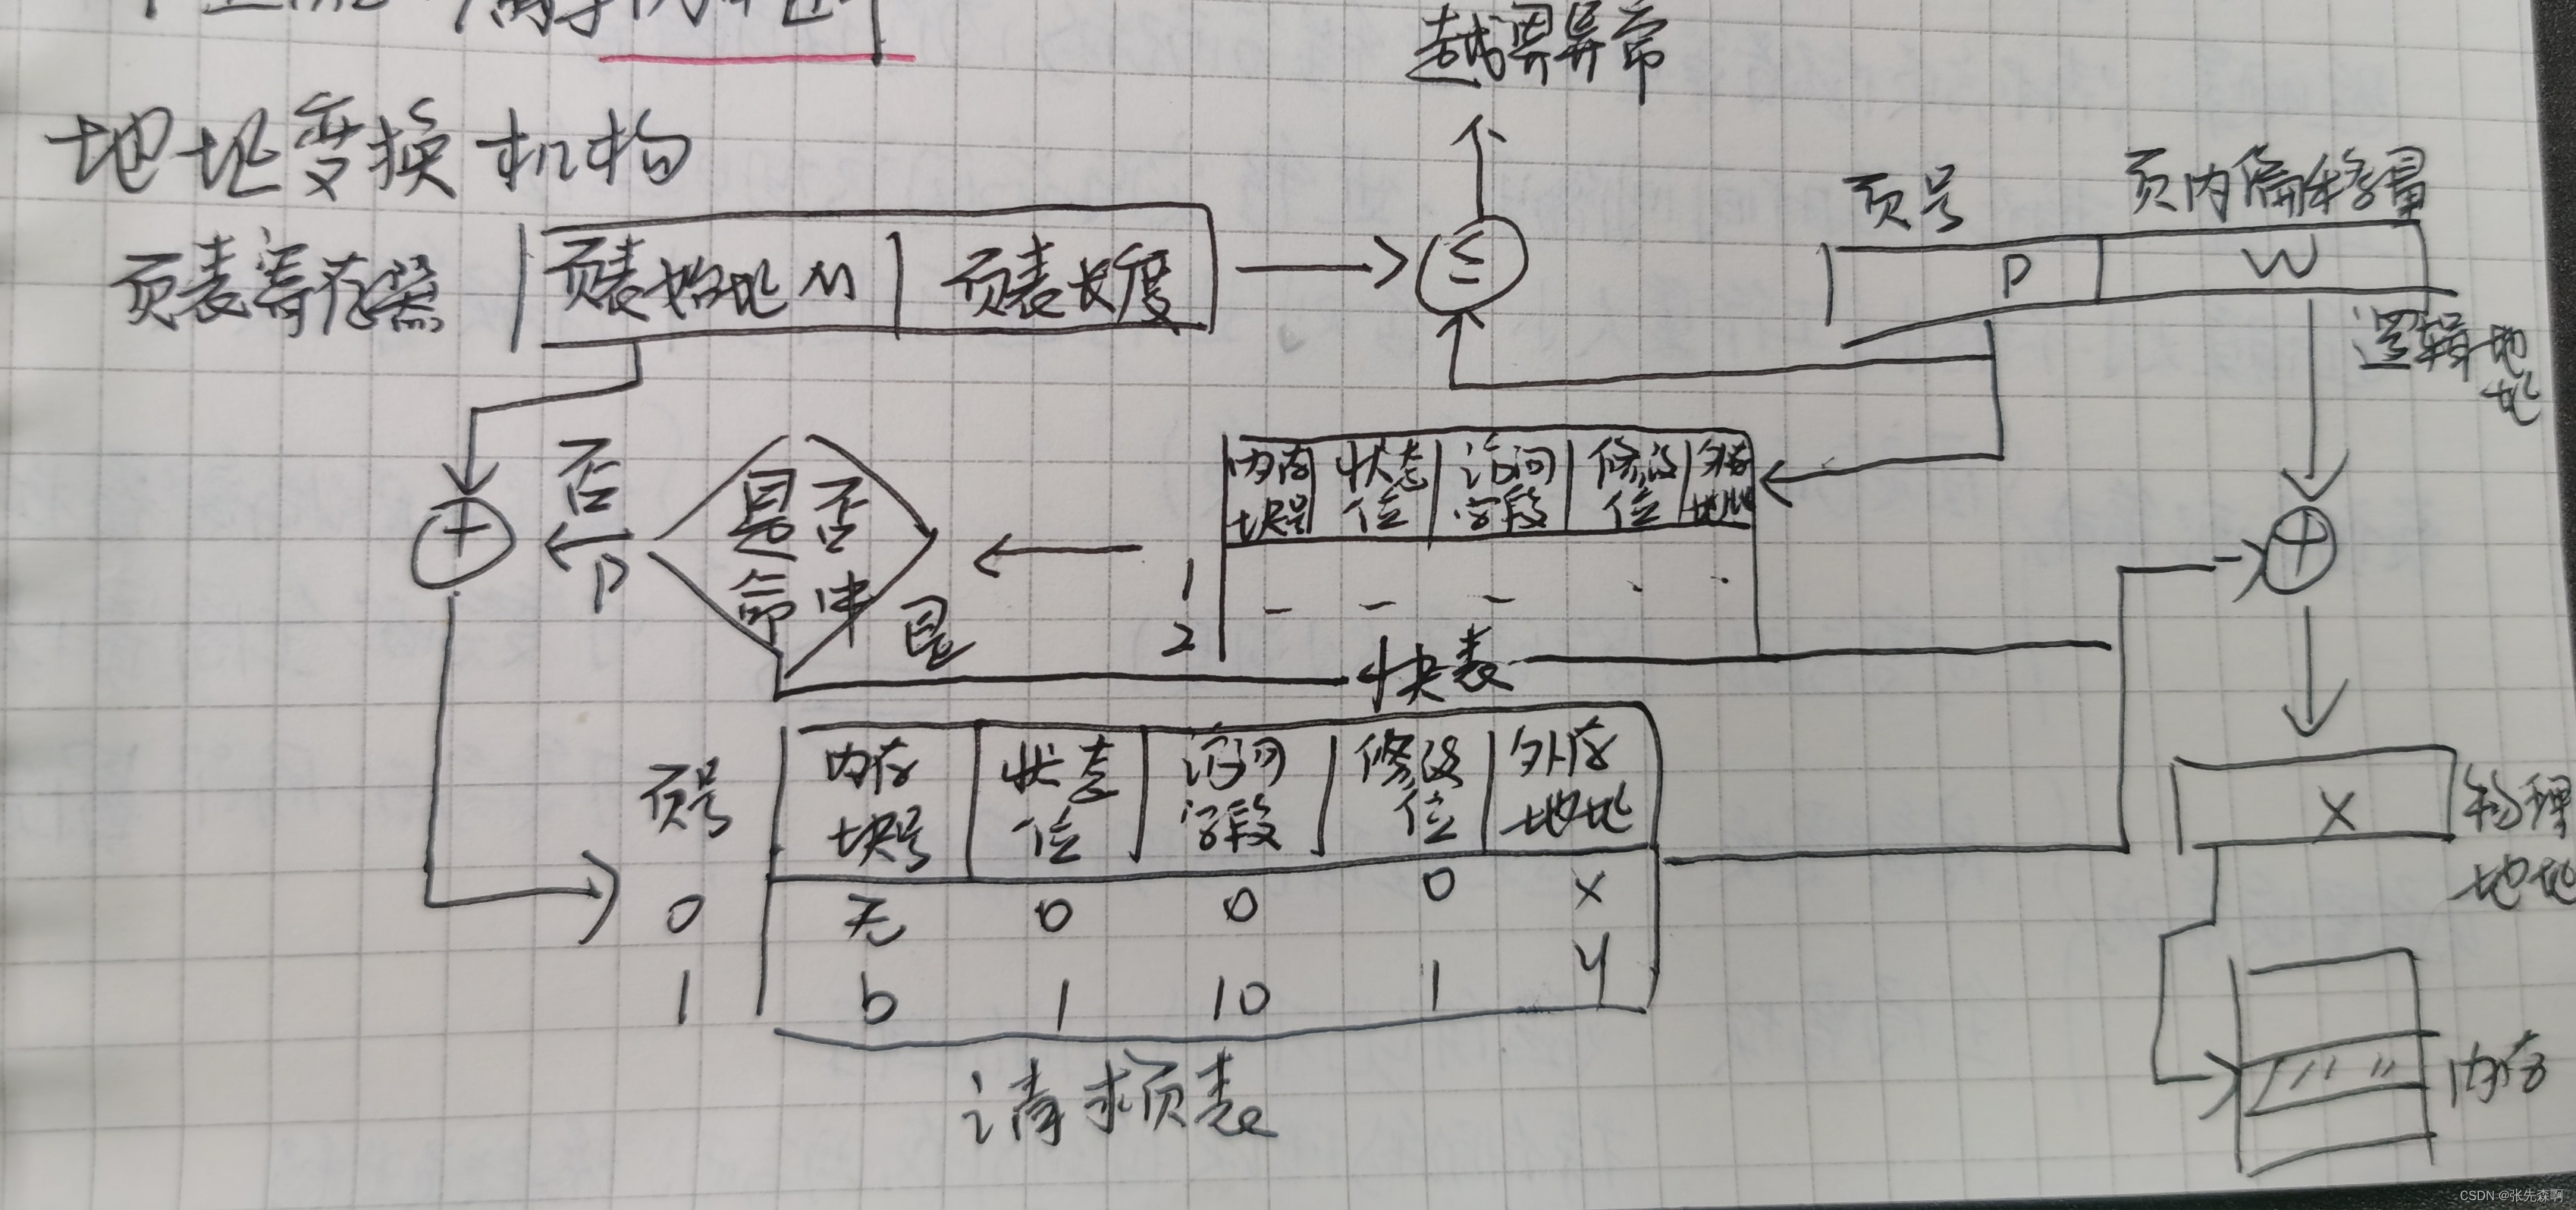 越界异常
地址变换机构
页号 页内偏移量
页表寄存器 页表始址M 页表长度 ≤ P W
逻辑地址
否 是否命中 P 是
内存块号 状态位 访问字段 修改位 外存地址
+ +
1
2
快表
页号 内存块号 状态位 访问字段 修改位 外存地址
X 物理地址
0 无 0 0 0 x
1 b 1 10 1 y
内存
请求页表
CSDN @张先森啊